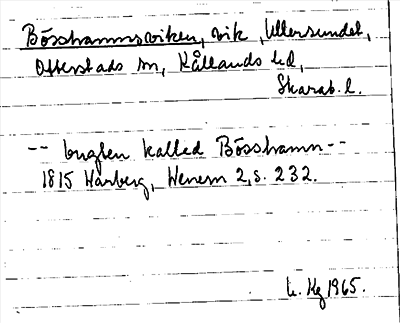 Bösshamnsviken, vik, Ullersundet,
Otterstads sn, Kållands hd,
Skarab. l.
-- bugten kalled Bösshamn --
1815 Harberg, Wenern 2, s. 232.
1965.